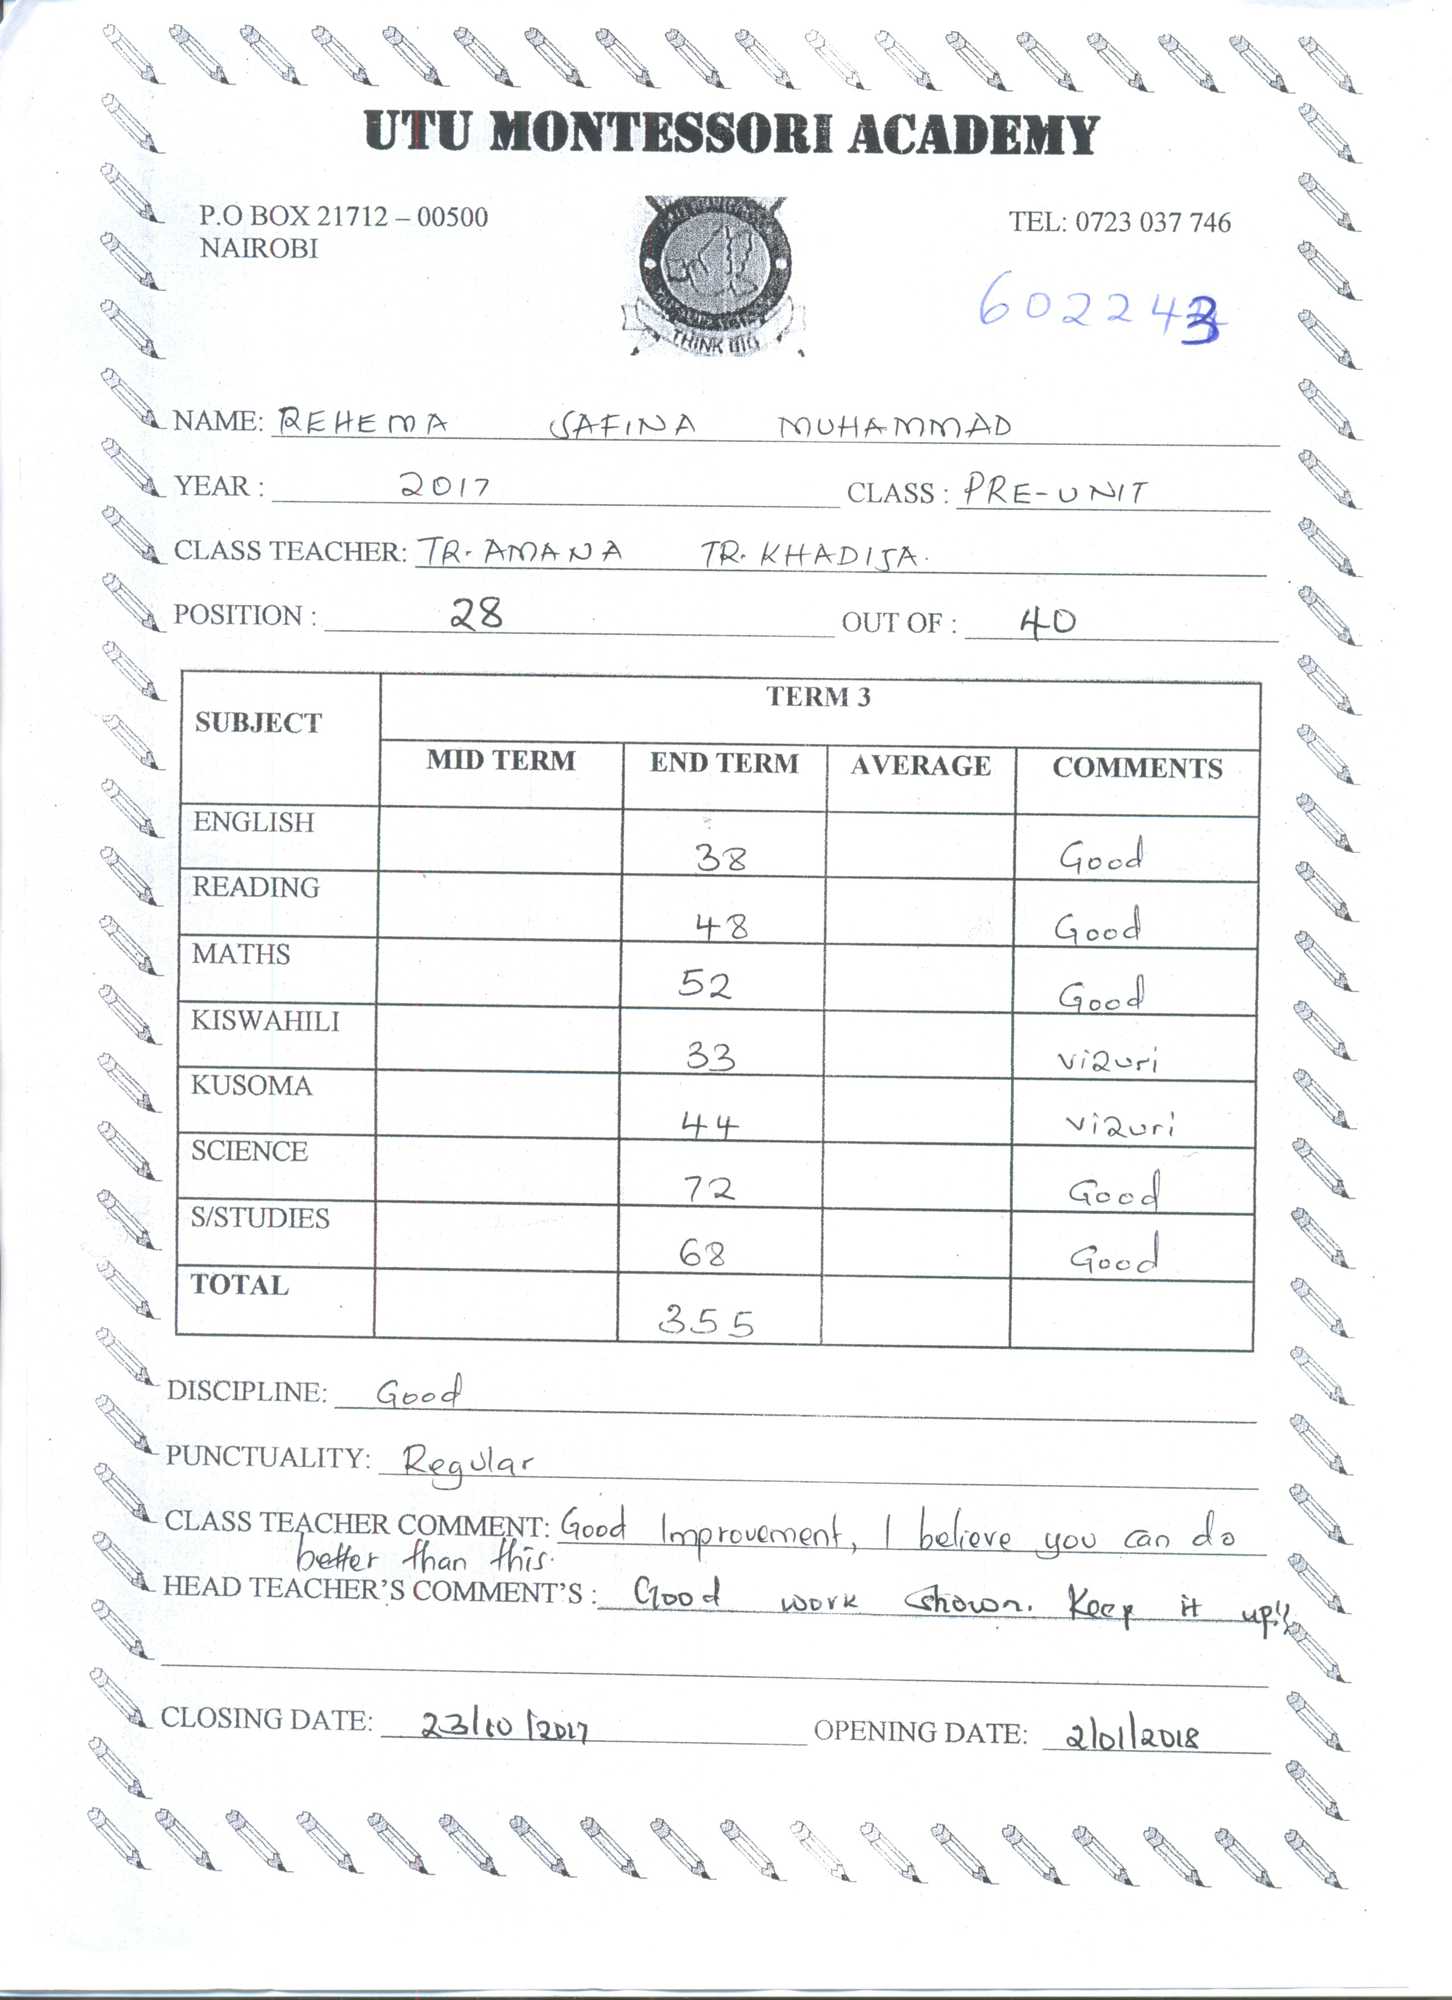 UTU MONTESSORI ACADEMY
P.O BOX 21712 – 00500
NAIROBI
TEL: 0723 037 746
THINK BIG
602243
NAME: REHEMA SAFINA MUHAMMAD
YEAR : 2017 CLASS : PRE-UNIT
CLASS TEACHER: TR. AMANA TR. KHADIJA.
POSITION : 28 OUT OF : 40
SUBJECT TERM 3
MID TERM END TERM AVERAGE COMMENTS
ENGLISH 38 Good
READING 48 Good
MATHS 52 Good
KISWAHILI 33 vizuri
KUSOMA 44 vizuri
SCIENCE 72 Good
S/STUDIES 68 Good
TOTAL 355
DISCIPLINE: Good
PUNCTUALITY: Regular
CLASS TEACHER COMMENT: Good Improvement, I believe you can do
better than this.
HEAD TEACHER'S COMMENT'S : Good work shown. Keep it up!!
CLOSING DATE: 23/10/2017 OPENING DATE: 2/01/2018